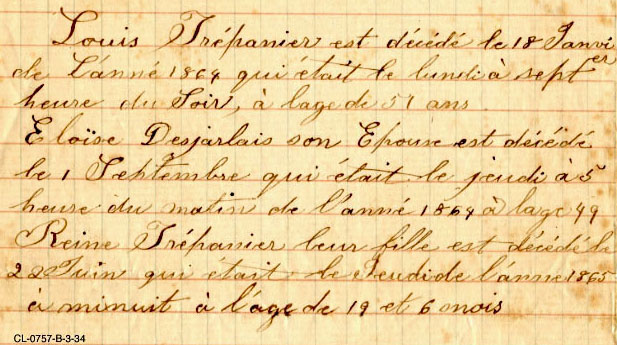 Louis Trépanier est décédé le 18 Janvier
de L'anné 1864 qui était le lundi à sept
heure du Soir, à lage de 57 ans
Eloïse Desjarlais son Epouse est décédé
le 1 Septembre qui était le jeudi à 5
heure du matin de l'anné 1864 à lage 49
Reine Trépanier leur fille est décédé le
22 Juin qui était le Jeudi de l'anné 1865
à minuit à l'age de 19 et 6 mois
CL-0757-B-3-34